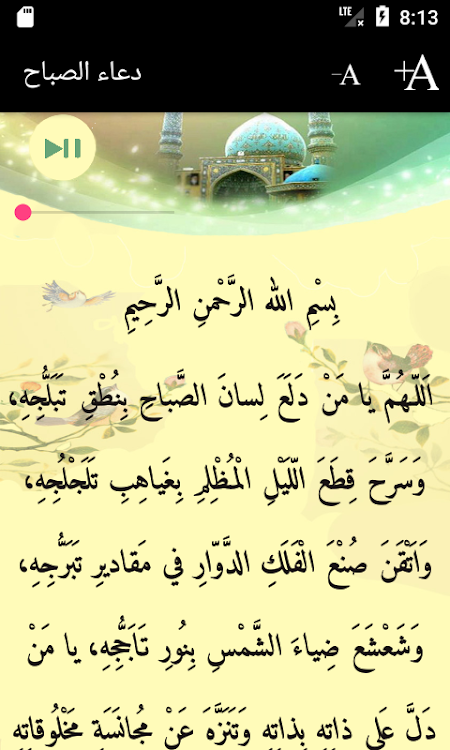 LTE 8:13
دعاء الصباح -A +A
بِسْمِ اللهِ الرَّحْمنِ الرَّحِيمِ
اَللّـهُمَّ يا مَنْ دَلَعَ لِسانَ الصَّباحِ بِنُطْقِ تَبَلُّجِهِ،
وَسَرَّحَ قِطَعَ الّلَيْلِ الْمُظْلِمِ بِغَياهِبِ تَلَجْلُجِهِ،
وَاَتْقَنَ صُنْعَ الْفَلَكِ الدَّوّارِ في مَقاديرِ تَبَرُّجِهِ،
وَشَعْشَعَ ضِياءَ الشَّمْسِ بِنُورِ تَاَجُّجِهِ، يا مَنْ
دَلَّ عَلى ذاتِهِ بِذاتِهِ وَتَنَزَّهَ عَنْ مُجانَسَةِ مَخْلُوقاتِهِ